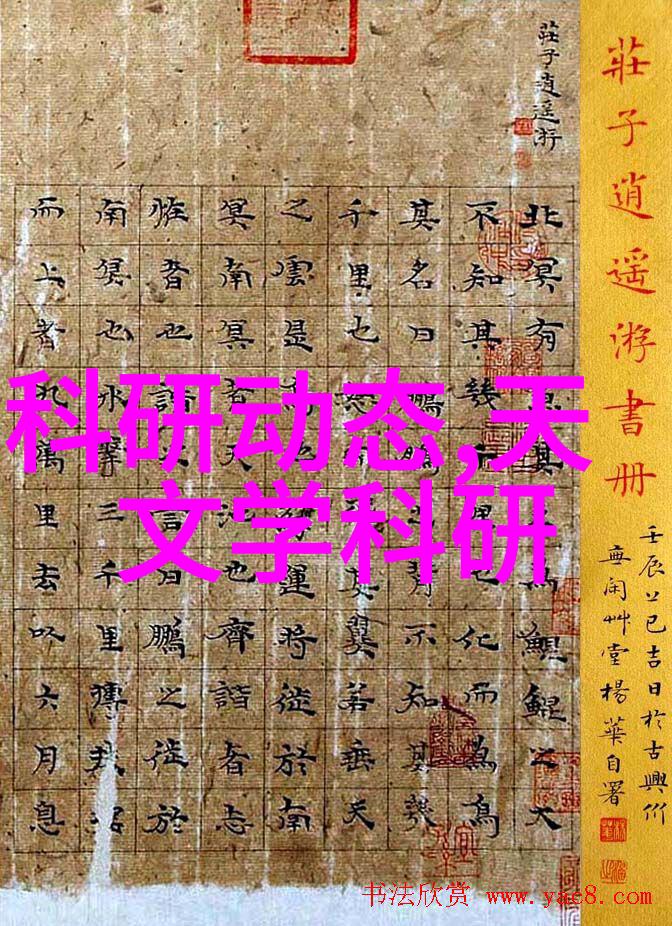 莊子逍遥游書冊
壬辰上巳吉日於古興州
無闲艸堂楊華自署
莊子逍遥游
北冥有魚其名為鯤鯤之大
不知其幾千里也化而為鳥
其名曰鵬鵬之背不知其幾
千里也怒而飛其翼若垂天
之雲是鳥也海運將徙於南
冥南冥者天池也齊諧者志
恠者也諧之言曰鵬之徙於
南冥也水擊三千里摶扶摇
而上者九萬里去以六月息
科研动态,天
文学科研
书法欣赏 www.yac8.com